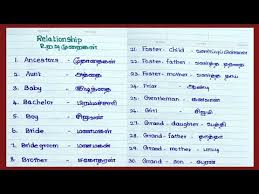 Relationship
உறவுமுறைகள்
1. Ancestors - முன்னோர்கள்
2. Aunt - அத்தை
3. Baby - குழந்தை
4. Bachelor - பிரம்மச்சாரி
5. Boy - சிறுவன்
6. Bride - மணமகள்
7. Bridegroom - மணமகன்
8. Brother - சகோதரன்
21. Foster - child - வளர்ப்புப்பிள்ளை
22. Foster - father - வளர்ப்பு தந்தை
23. Foster - mother - வளர்ப்பு தாய்
24. Friar -
25. Gentleman - கனவான்
26. Girl - சிறுமி
27. Grand - daughter - பேத்தி
28. Grand - father - தாத்தா
29. Grand - mother - பாட்டி
30. Grand - son - பேரன்